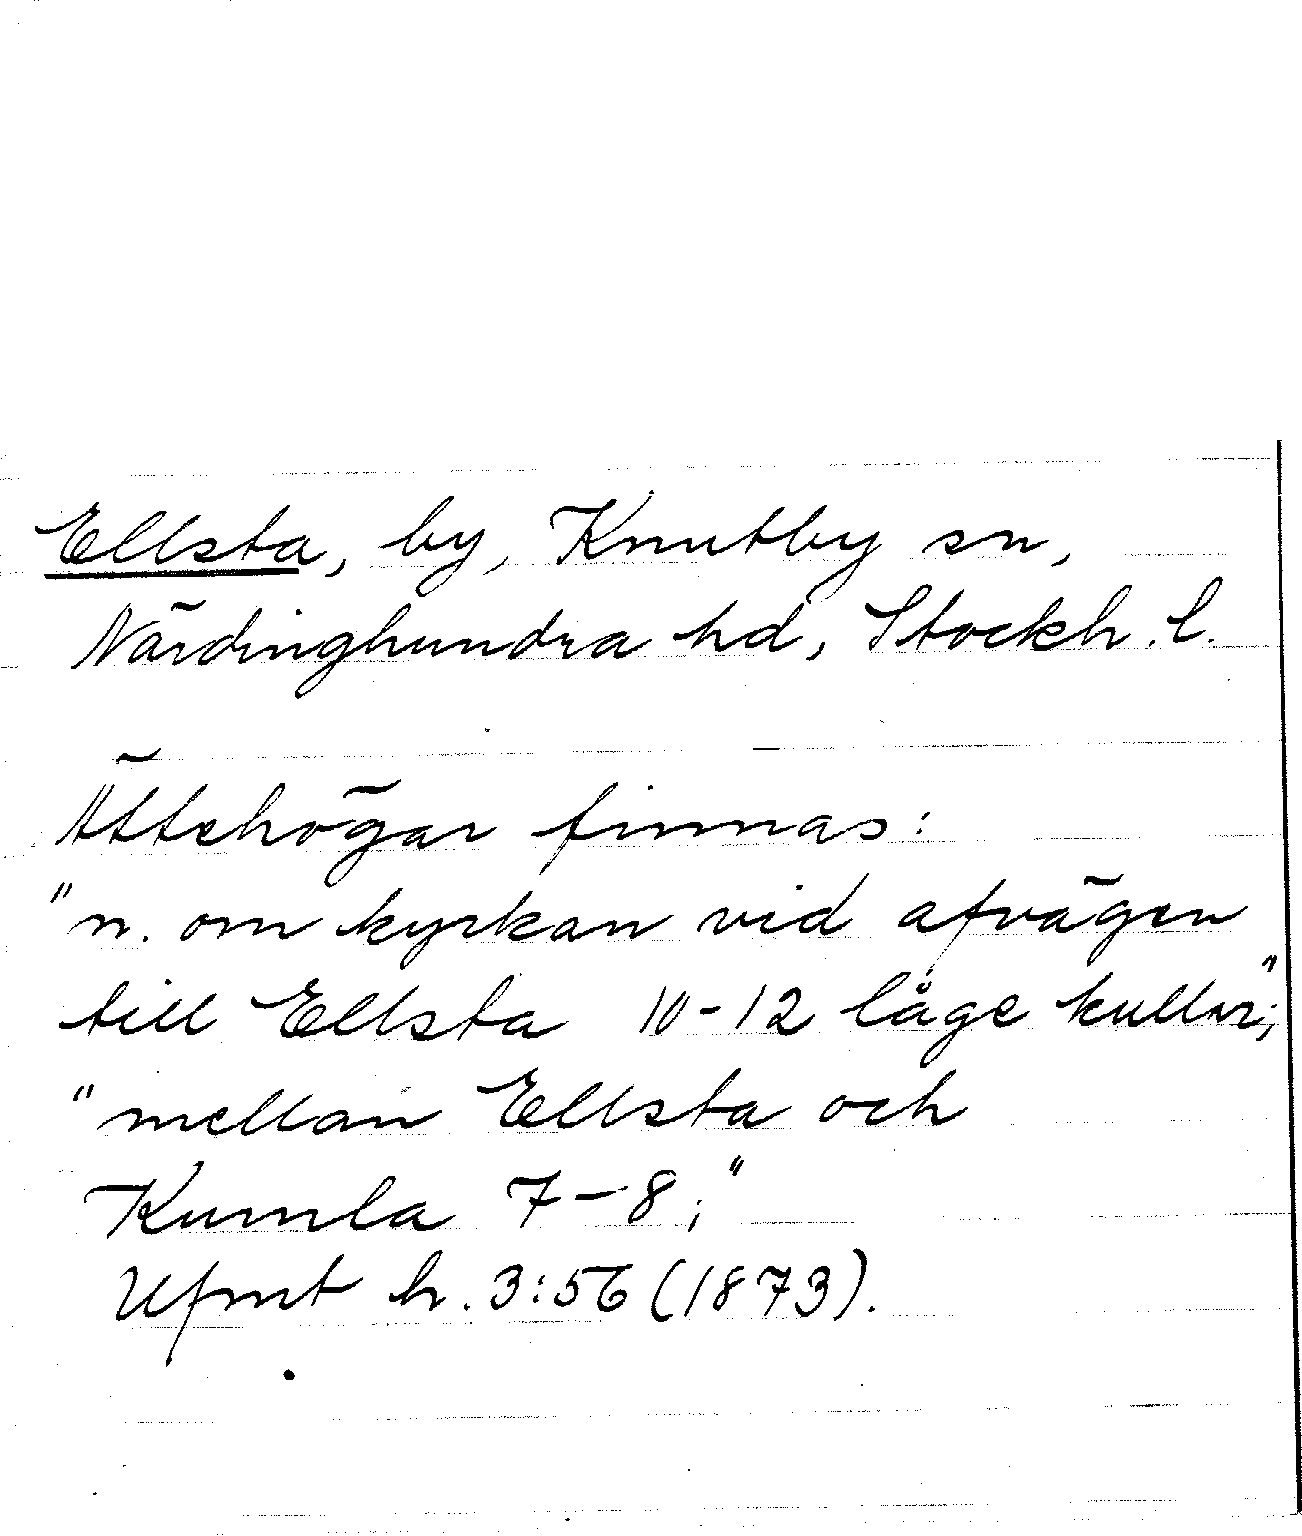 Ellsta, by, Knutby sn,
Närdinghundra hd, Stockh. l.
Ättehögar finnas:
"n. om kyrkan vid afvägen
till Ellsta 10-12 låge kullar;"
"mellan Ellsta och
Kumla 7-8;"
Ufmt h. 3:56 (1873).